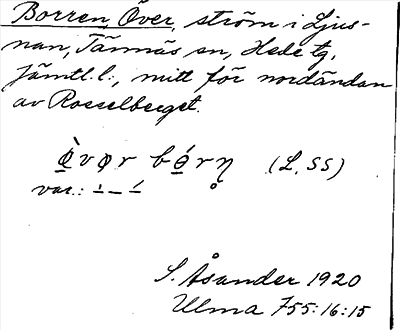 Borren, Över, ström i Ljus-
nan, Tännäs sn, Hede tg,
Jämtl. l., mitt för nordändan
av Rosselberget.
ø̀vər bórn̥ (L, SS)
var.:
S. Åsander 1920
Ulma 755:16:15